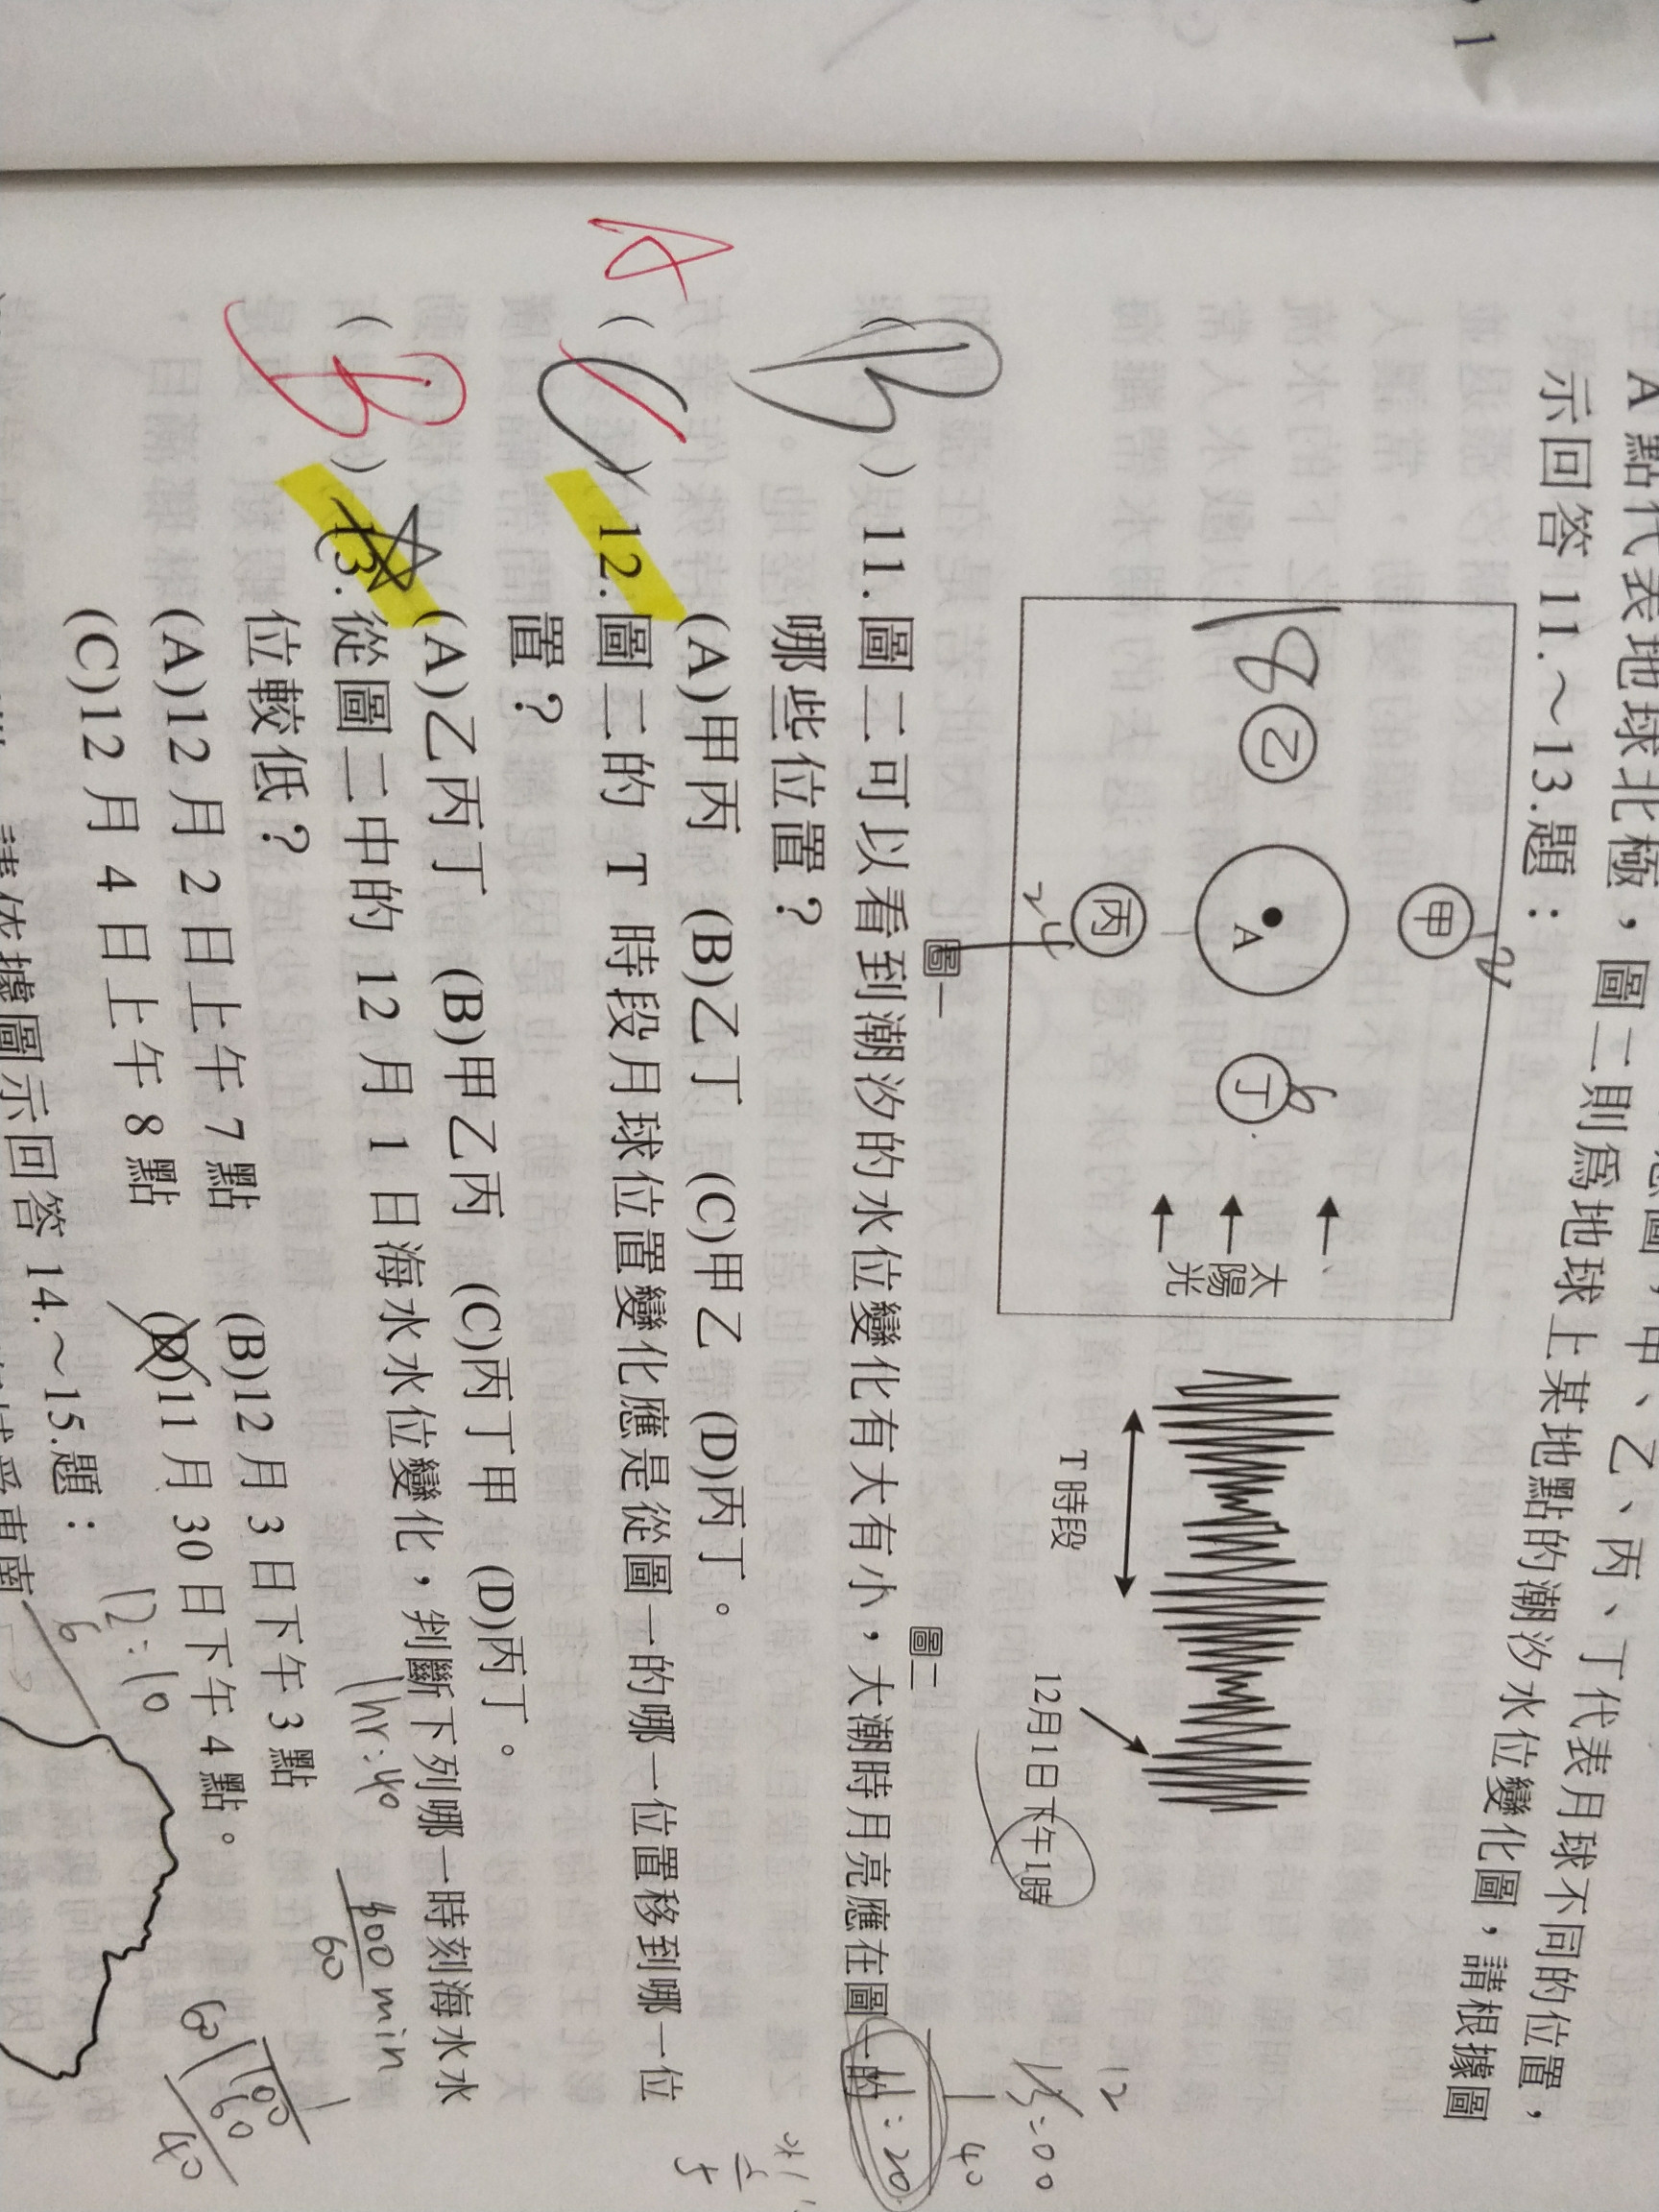 1
A點代表地球北極,圖二則為地球上某地點的潮汐水位變化圖,請根據圖
甲、乙、丙、丁代表月球不同的位置,
示回答 11.~13.題:
甲
乙
A
丙
丁
太陽光
18
24
6
圖一
T 時段
12月1日下午1時
圖二
B
( ) 11.圖二可以看到潮汐的水位變化有大有小,大潮時月亮應在圖一的
哪些位置?
(A)甲丙 (B)乙丁 (C)甲乙 (D)丙丁。
A
( C ) 12.圖二的 T 時段月球位置變化應是從圖一的哪一位置移到哪一位
置?
(A)乙丙丁 (B)甲乙丙 (C)丙丁甲 (D)丙丁。
B
( ) 13.從圖二中的 12 月 1 日海水水位變化,判斷下列哪一時刻海水水
位較低?
(A)12 月 2 日上午 7 點 (B)12 月 3 日下午 3 點
(C)12 月 4 日上午 8 點 (D)11 月 30 日下午 4 點。
請依據圖示回答 14.~15.題:
12
40
: 20
1hr:40
min
60
12:10
6
60
100
60
40